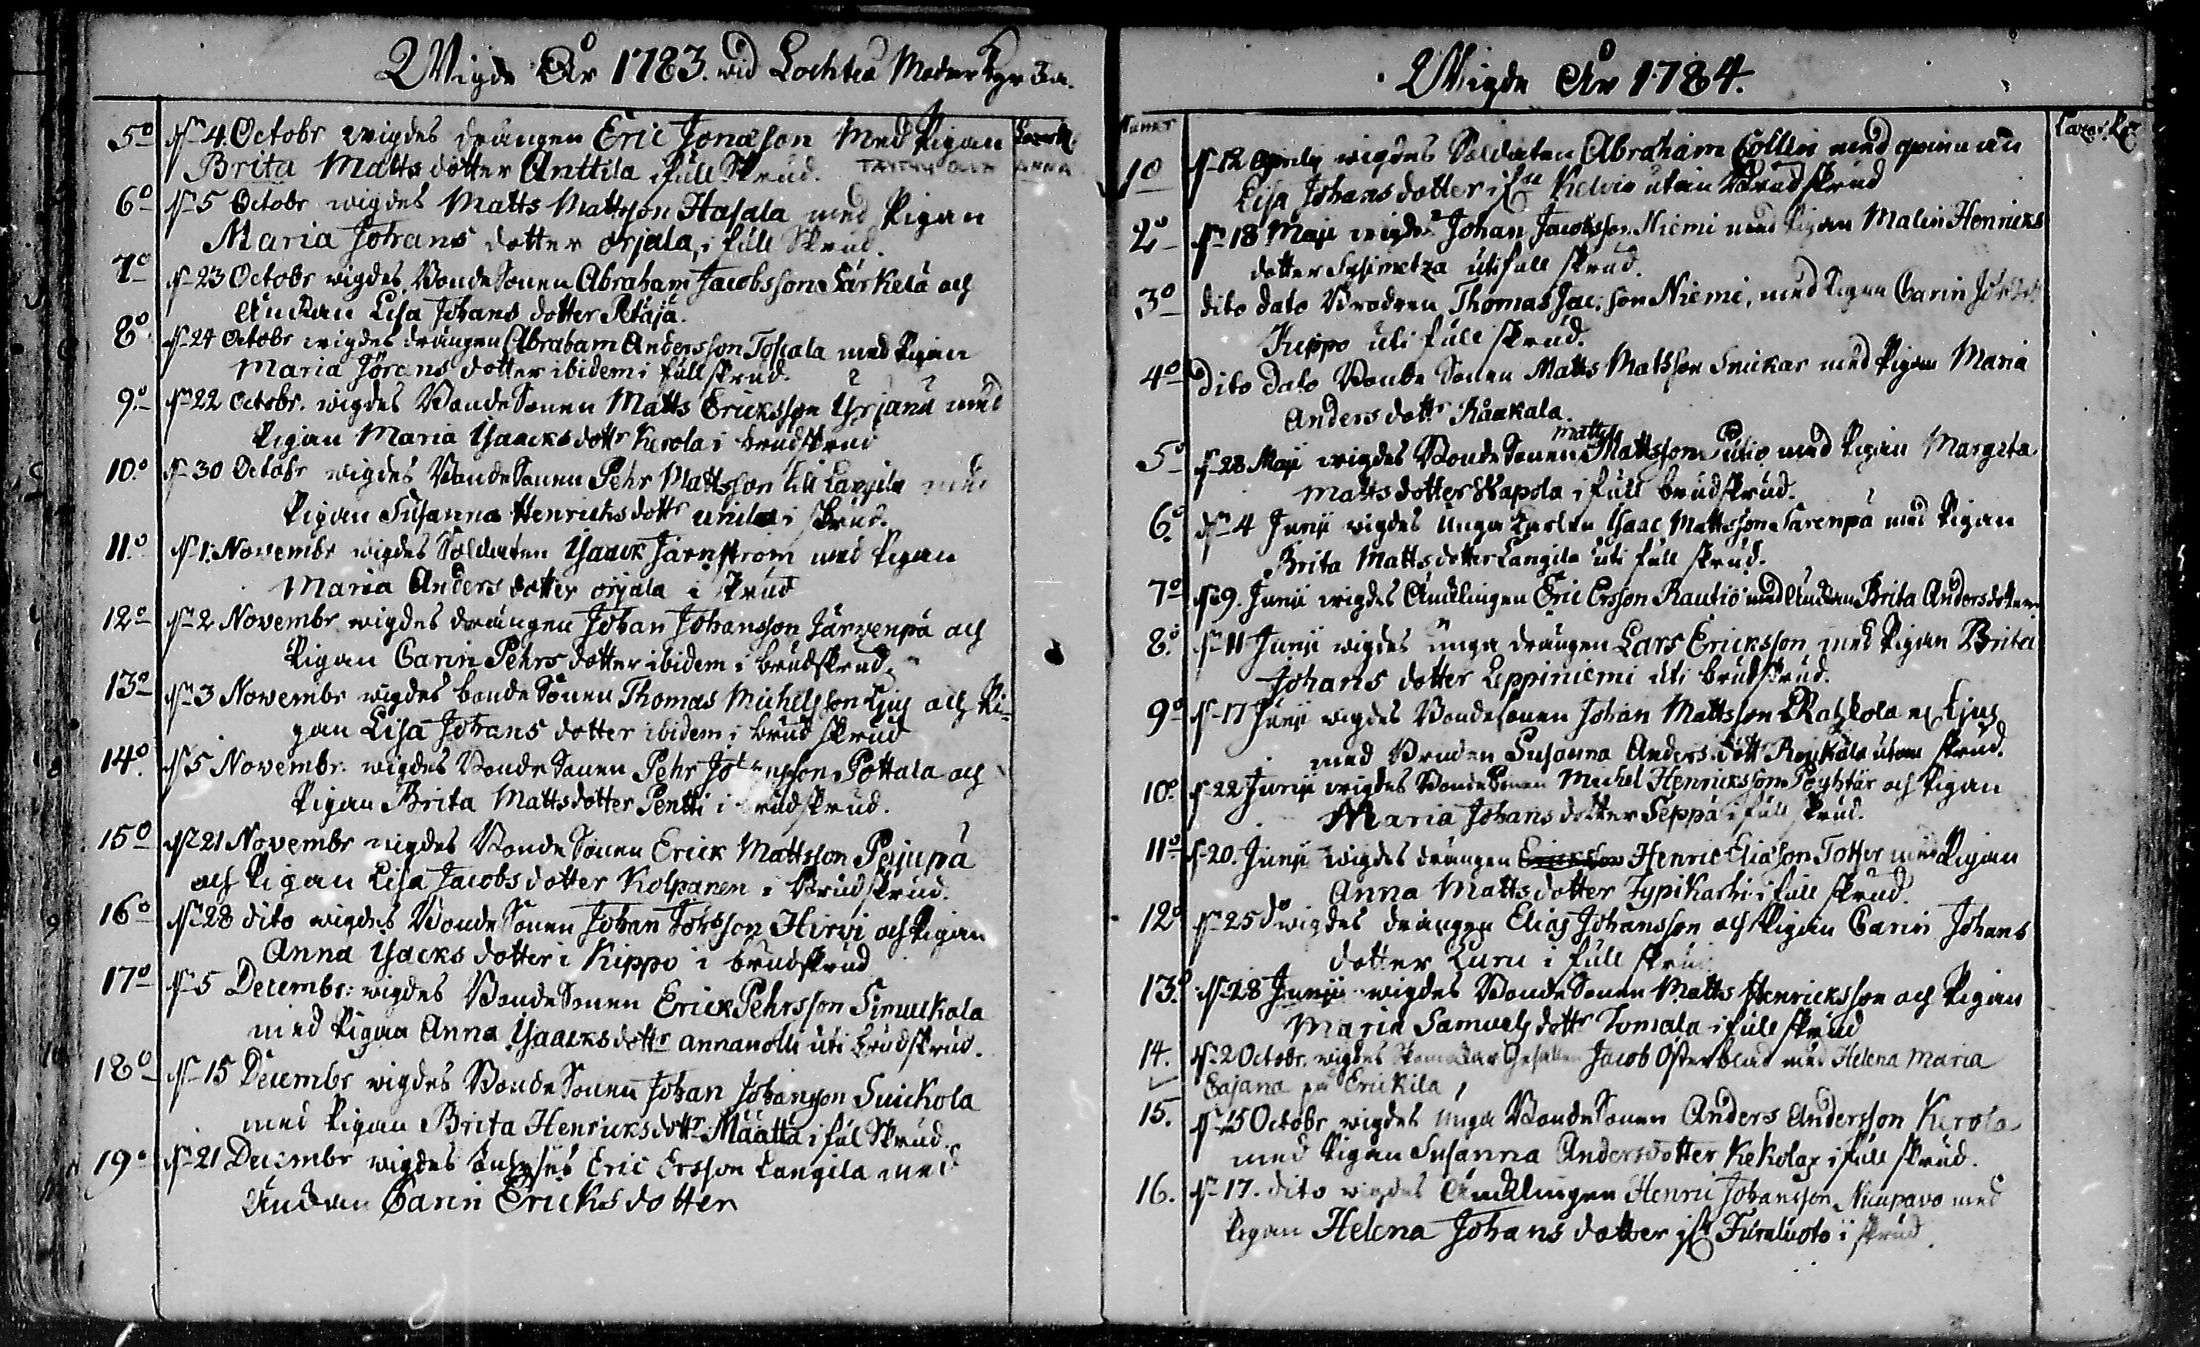 Wigde År 1783. wid Lochteå Moderkyrka.
5º dn 4 Octobr wigdes drängen Eric Jonæson Med Pigan
Brita Matts dotter Anttila i full Skrud.
6º dn 5 Octobr wigdes Matts Mattsson Hasala med Pigan
Maria Johans dotter Orjala, i full Skrud.
7º dn 23 Octobr wigdes Bonde Sonen Abraham Jacobsson Särkelä och
Änckan Lisa Johans dotter Ritäjä.
8º dn 24 Octobr wigdes drängen Abraham Andersson Toscala med Pigan
Maria Jörans dotter ibidem i full skrud.
9º dn 22 Octobr. wigdes Bonde Sonen Matts Ericksson Yrjänä med
Pigan Maria Isaacks dottr Kerola i brudskrud
10º dn 30 Octobr wigdes Bonde Sonen Pehr Mattsson Lili Langila med
Pigan Susanna Henricks dottr i skrud.
11º dn 1. Novembr wigdes Soldaten Isaack Järnström med Pigan
Maria Anders dotter Orjala i skrud
12º dn 2 Novembr wigdes drängen Johan Johansson Järvenpä och
Pigan Carin Pehrs dotter ibidem i brudskrud
13º dn 3 Novembr wigdes bonde Sonen Thomas Michelsson Ljus och Pi=
gan Lisa Johans dotter ibidem i brudskrud
14º dn 5 Novembr. wigdes Bonde Sonen Pehr Johansson Pottala och
Pigan Brita Matts dotter Pentti i brudskrud.
15º dn 21 Novembr wigdes Bonde Sonen Erick Mattsson Peijupä
och Pigan Lisa Jacobs dotter Kolpanen i Brudskrud.
16º dn 28 dito wigdes Bonde Sonen Johan Johsson Hirvi och Pigan
Anna Isacks dotter i Kippo i brudskrud
17º dn 5 Decembr: wigdes Bonde Sonen Erick Pehrsson Simukala
med Pigan Anna Isaacks dottr Annanolli uti brudskrud.
18º dn 15 Decembr wigdes Bonde Sonen Johan Johansson Snickola
med Pigan Brita Henricks dottr Määttä i ful Skrud.
19º dn 21 Decembr wigdes Eric Ersson Langila med
Änckan Carin Ericks dotter
Wigde År 1784.
1º dn 12 Aprilis wigdes Soldaten Abraham Collin med qwinnan
Lisa Johans dotter ifrn Kelvio utan Brudskrud
2º dn 18 Maji wigdes Johan Jacobsson Niemi med Pigan Malin Henricks
dotter Sysimetza uti full skrud.
3º dito dato Brodren Thomas Jac: son Niemi, med Pigan Carin
Kuppo uti full skrud.
4º dito dato Bonde Sonen Matts Matsson Snickar med Pigan Maria
Anders dottr Råukala
5º dn 28 Maji wigdes Bonde Sonen Matts Mattsson med Pigan Margeta
Matts dotter Wapola i full brudskrud.
6º dn 4 Junii wigdes unga Karlen Isaac Mattsson Sarenpä med Pigan
Brita Matts dotter Langila uti full skrud.
7º dn 9. Junii wigdes Änklingen Eric Ersson Rautio med Änckan Brita Andersdotter
8º dn 11 Junii wigdes unga drängen Lars Ericksson med Pigan Brita
Johans dotter Leppiniemi uti brudskrud.
9º dn 17 Junii wigdes Bondesonen Johan Mattsson Rahkola Ljus
med Bruden Susanna Anders dottr Roukala utan skrud.
10º dn 22 Junii wigdes Bonde Sonen Michel Henricksson Pöyhtär och Pigan
Maria Johans dotter Seppä i full skrud.
11º dn 20. Junii wigdes drängen Ericksson Henric Eliæson Tofser med Pigan
Anna Matts dotter Typikarhi i full skrud.
12º dn 25 dº wigdes drängen Elias Johansson och Pigan Carin Johans
dotter Luru i full skrud
13º dn 28 Junii wigdes Bonde Sonen Matts Henricksson och Pigan
Maria Samuels dottr Tomala i full skrud
14. dn 2 Octobr. wigdes Skomakar Gesällen Jacob Österblad med Helena Maria
Cajana på Erickila
15. dn 15 Octobr wigdes unga Bonde Sonen Anders Andersson Kerola
med Pigan Susanna Andersdotter Kekolax i full skrud.
16. dn 17. dito wigdes Äncklingen Henric Johansson Niupavo med
Pigan Helena Johans dotter ifr Furaluoto i skrud.